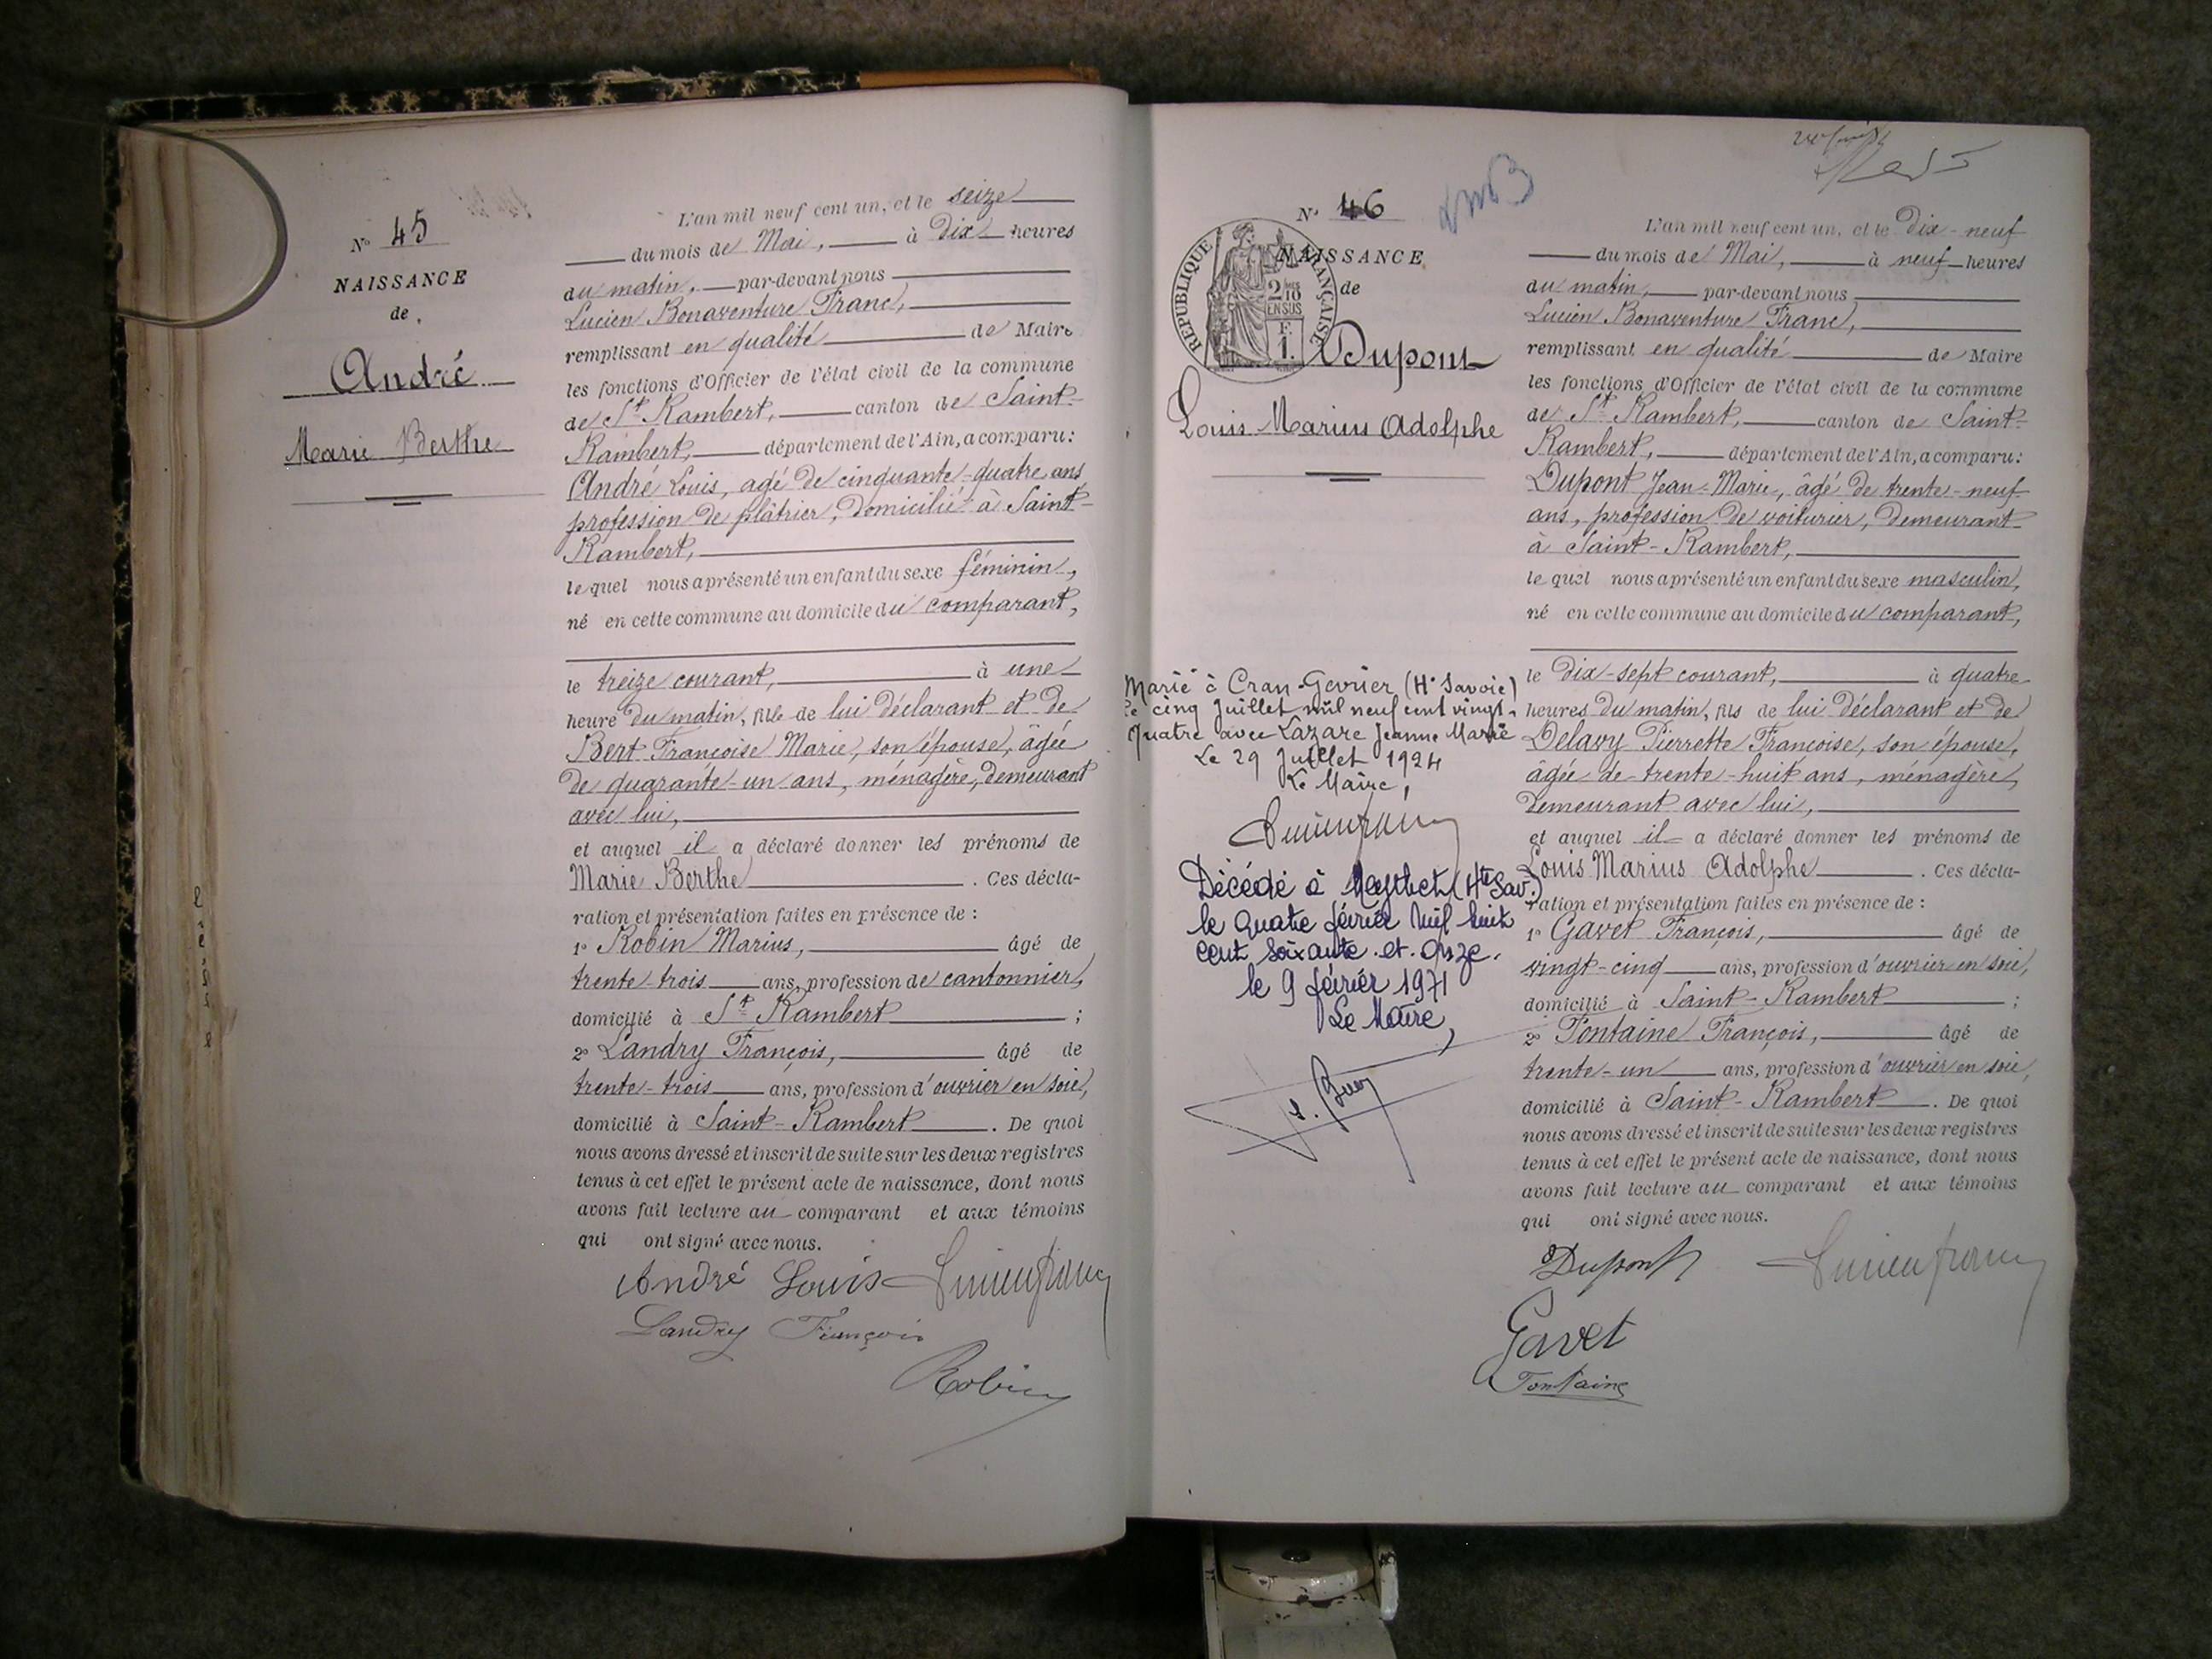 N° 45
NAISSANCE
de
André
Marie Berthe
L'an mil neuf cent un, et le seize
du mois de Mai, à Dix heures
du matin, par-devant nous
Lucien Bonaventure Franc,
remplissant en qualité de Maire
les fonctions d'Officier de l'état civil de la commune
de St Rambert, canton de Saint-
Rambert, département de l'Ain, a comparu:
André Louis, agé de cinquante-quatre ans
profession de plâtrier, domicilié à Saint-
Rambert,
lequel nous a présenté un enfant du sexe féminin,
né en cette commune au domicile du comparant,
le treize courant, à une
heure du matin, fille de lui déclarant et de
Bert Françoise Marie, son épouse, âgée
de quarante-un ans, ménagère, demeurant
avec lui,
et auquel il a déclaré donner les prénoms de
Marie Berthe. Ces décla-
ration et présentation faites en présence de :
1° Robin Marius, âgé de
trente-trois ans, profession de cantonnier,
domicilié à St Rambert ;
2° Landry François, âgé de
trente-trois ans, profession d'ouvrier en soie,
domicilié à Saint-Rambert. De quoi
nous avons dressé et inscrit de suite sur les deux registres
tenus à cet effet le présent acte de naissance, dont nous
avons fait lecture au comparant et aux témoins
qui ont signé avec nous.
André Louis Lucien franc
Landry François
Robin
N° 46
RÉPUBLIQUE FRANÇAISE
2/10 EN SUS
F. 1.
NAISSANCE
de
Dupont
Louis Marius Adolphe
Marié à Cran-Gevrier (Hte Savoie)
le cinq Juillet mil neuf cent vingt-
quatre avec Lazare Jeanne Marie
Le 29 Juillet 1924
Le Maire,
Lucien franc
Décédé à Meythet (Hte Sav.)
le quatre février mil huit
cent soixante et onze.
le 9 février 1971
Le Maire,
L'an mil neuf cent un, et le Dix-neuf
du mois de Mai, à neuf heures
du matin, par-devant nous
Lucien Bonaventure Franc,
remplissant en qualité de Maire
les fonctions d'Officier de l'état civil de la commune
de St Rambert, canton de Saint-
Rambert, département de l'Ain, a comparu:
Dupont Jean-Marie, âgé de trente-neuf
ans, profession de voiturier, demeurant
à Saint-Rambert,
lequel nous a présenté un enfant du sexe masculin,
né en cette commune au domicile du comparant,
le Dix-sept courant, à quatre
heures du matin, fils de lui déclarant et de
Delavy Pierrette Françoise, son épouse,
âgée de trente-huit ans, ménagère,
demeurant avec lui,
et auquel il a déclaré donner les prénoms de
Louis Marius Adolphe. Ces décla-
ration et présentation faites en présence de :
1° Gavet François, âgé de
vingt-cinq ans, profession d'ouvrier en soie,
domicilié à Saint-Rambert ;
2° Fontaine François, âgé de
trente-un ans, profession d'ouvrier en soie,
domicilié à Saint-Rambert. De quoi
nous avons dressé et inscrit de suite sur les deux registres
tenus à cet effet le présent acte de naissance, dont nous
avons fait lecture au comparant et aux témoins
qui ont signé avec nous.
Dupont Lucien franc
Gavet
Fontaine